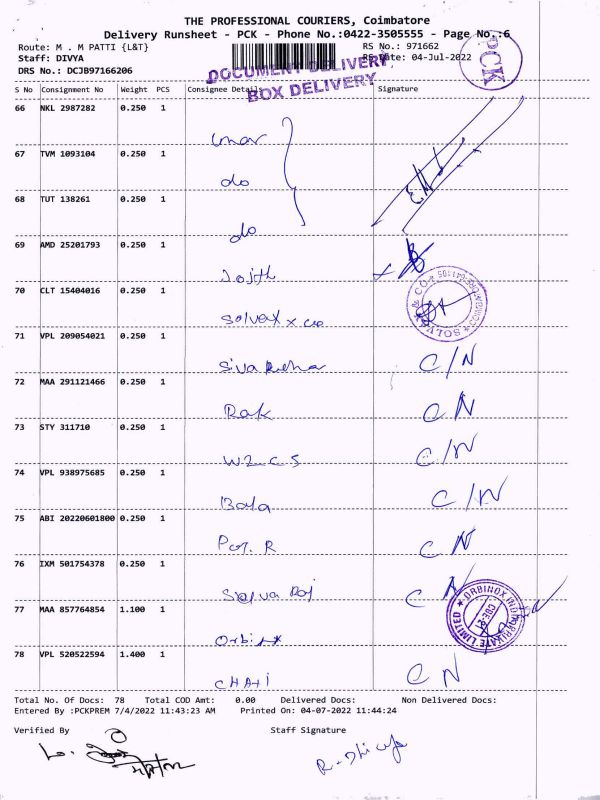 THE PROFESSIONAL COURIERS, Coimbatore
Delivery Runsheet - PCK - Phone No.:0422-3505555 - Page No.:6
Route: M . M PATTI {L&T} RS No.: 971662
Staff: DIVYA RS Date: 04-Jul-2022
DRS No.: DCJB97166206
DOCUMENT DELIVERY
BOX DELIVERY
PCK
S No Consignment No Weight PCS Consignee Details Signature
66 NKL 2987282 0.250 1
67 TVM 1093104 0.250 1 do
68 TUT 138261 0.250 1 do
69 AMD 25201793 0.250 1
70 CLT 15404016 0.250 1 Solvex x co
71 VPL 209054021 0.250 1 C/N
72 MAA 291121466 0.250 1 Rak CN
73 STY 311710 0.250 1 C/N
74 VPL 938975685 0.250 1 Bala C/N
75 ABI 20220601800 0.250 1 CN
76 IXM 501754378 0.250 1 Selva Raj CN
77 MAA 857764854 1.100 1 Orbinox
78 VPL 520522594 1.400 1 CN
Total No. Of Docs: 78 Total COD Amt: 0.00 Delivered Docs: Non Delivered Docs:
Entered By :PCKPREM 7/4/2022 11:43:23 AM Printed On: 04-07-2022 11:44:24
Verified By Staff Signature
R. Dhivya